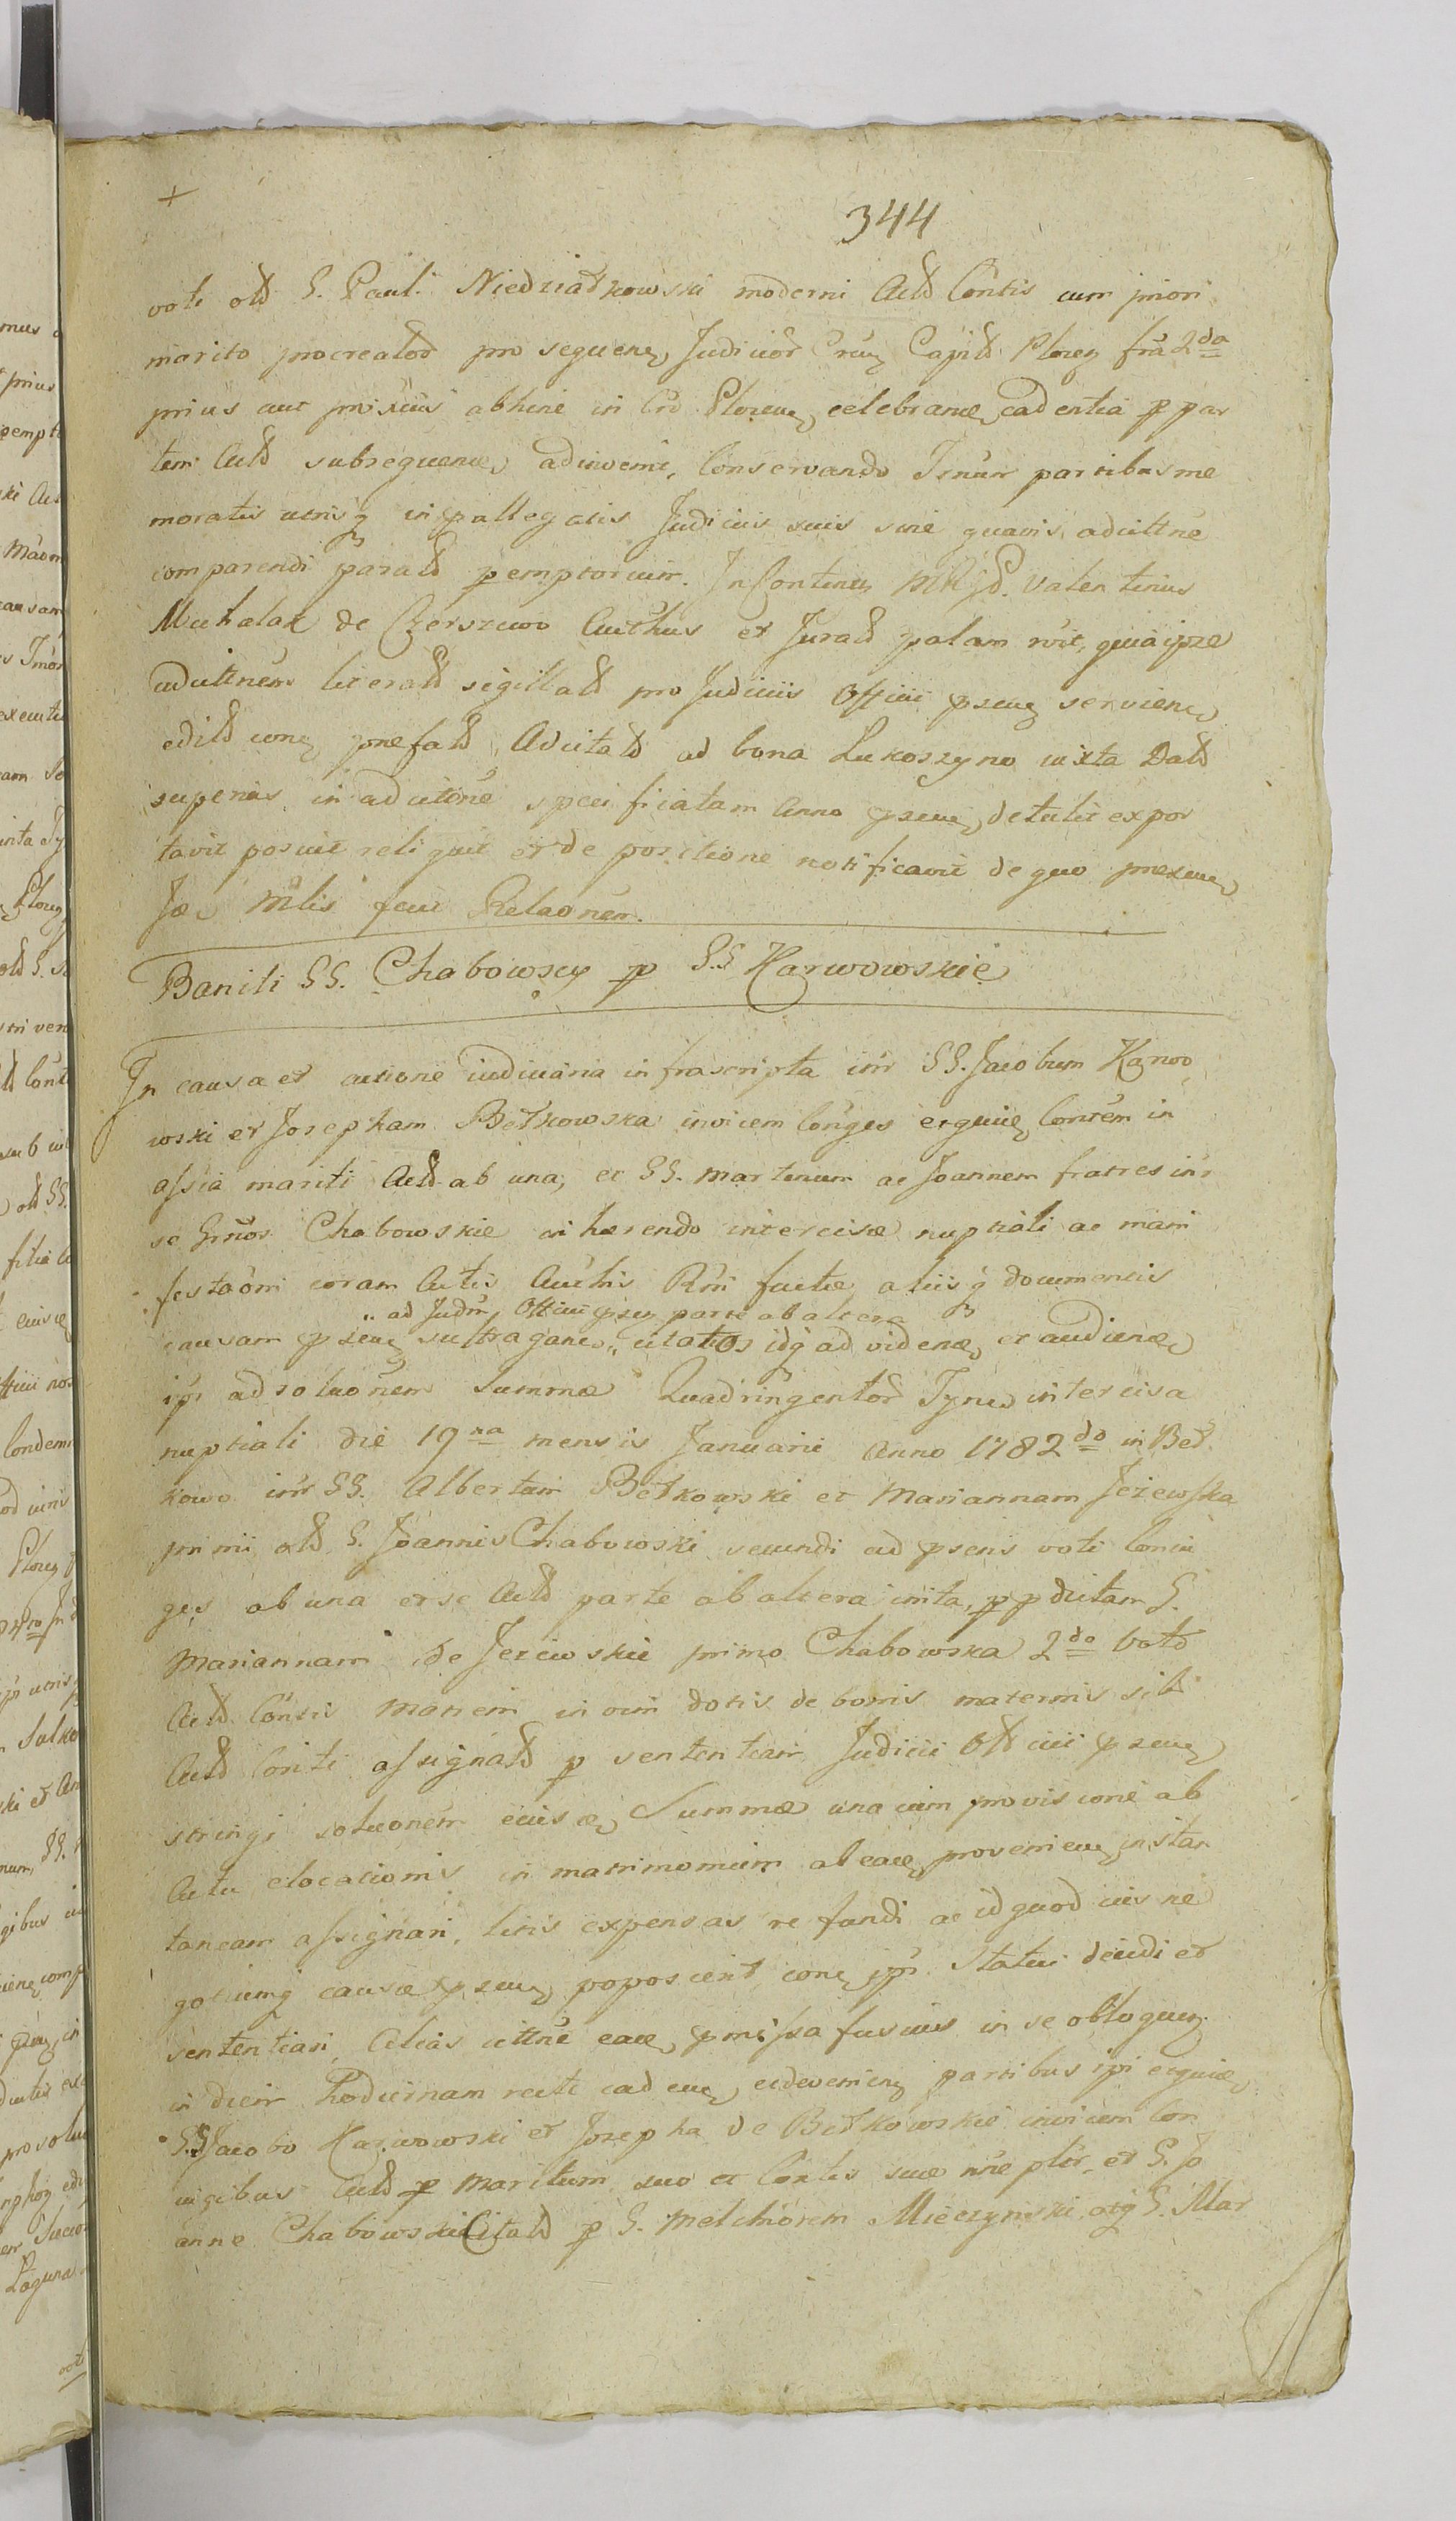 344
voti olb G. Pauli Niedziałkowski moderni Actb Contis cum priori
marito procreatob pro sequenꝫ Judiciob Cap Plocꝫ fra 2da
prius aut proxius abhinc in Plocenꝫ celebranꝫ cadentia p par
tem Actb subsequenꝫ adinveni, Conservando Tenur partibus me
moratis utrisq in pallegatis Judiciis suis sine quavis adcittne
comparendi paratb pemptorium. In Continenꝫ Valentinus
Michalak de Czerszewo et Juratb palam quia ipse
adcittnem literatb sigillatb pro Judiciis Officii pseneꝫ servienꝫ
editb conꝫ prefatb Adcitatb ad bona Lukoszyno iuxta Datb
superius in adcitone specificatam Anno pseneꝫ detulit expor
tavit posuit reliquit et de positione notificavit de quo prexenꝫ
Mlis fecit Relaonem.
Baniti GG. Chabowscy p G.G Karwowskie
In causa et actione iudiciaria infrascripta intr GG. Jacobum Karwo
wski et Josepham Betkowska invicem Conges erquiꝫ Contem in
assia mariti Actb ab una, et GG. Martinum ac Joannem fratres intr
se Grnos Chabowskie inhærendo intercisæ nuptiali ac mani
festaoni coram Actis Rni factæ aliisq documentis
„ ad Judm Officii psenꝫ parte ab altera
causam pseneꝫ suffraganeꝫ „ citatos idq ad videnꝫ et audienꝫ
ipi adsoluonem Summæ Quadringentob Tynꝫ intercisa
nuptiali die 19na mensis Januarii Anno 1782do in Bet
kowo intr GG. Albertum Betkowski et Mariannam Jeżewska
primi olb G. Joannis Chabowski secundi ad psens voti Coniu
ges ab una et se Actb parte ab altera inita, p pdictam G.
Mariannam de Jeżewskie primo Chabowska 2do Voto
Actb Contis Matrem in vim dotis de bonis maternis sibi
Actb Conti assignatb p sententiam Judicii Officii pseneꝫ
stringi soluonem eiusdꝫ Summæ una cum provisione ab
Actu elocationis in matrimonium ab eadꝫ provenienꝫ instan
taneam assignari, litis expensas refundi ac id quod iuris ne
gotiumq causæ pseneꝫ poposcerit, conꝫ ipi Statui decidi et
sententiari, Alias cittne eadꝫ pmissa fusius in se obloquenꝫ
in diem hodiernam recte cadenꝫ edevenienꝫ partibus ipi erquiꝫ
GG Jacobo Karwowski et Josepha de Betkowskie invicem Con
iugibus Actb p Maritum suo et Contis suæ nne pltr, et G. Jo
anne Chabowski Citatb p G. Melchiorem Mieczynski, atq G. Mar